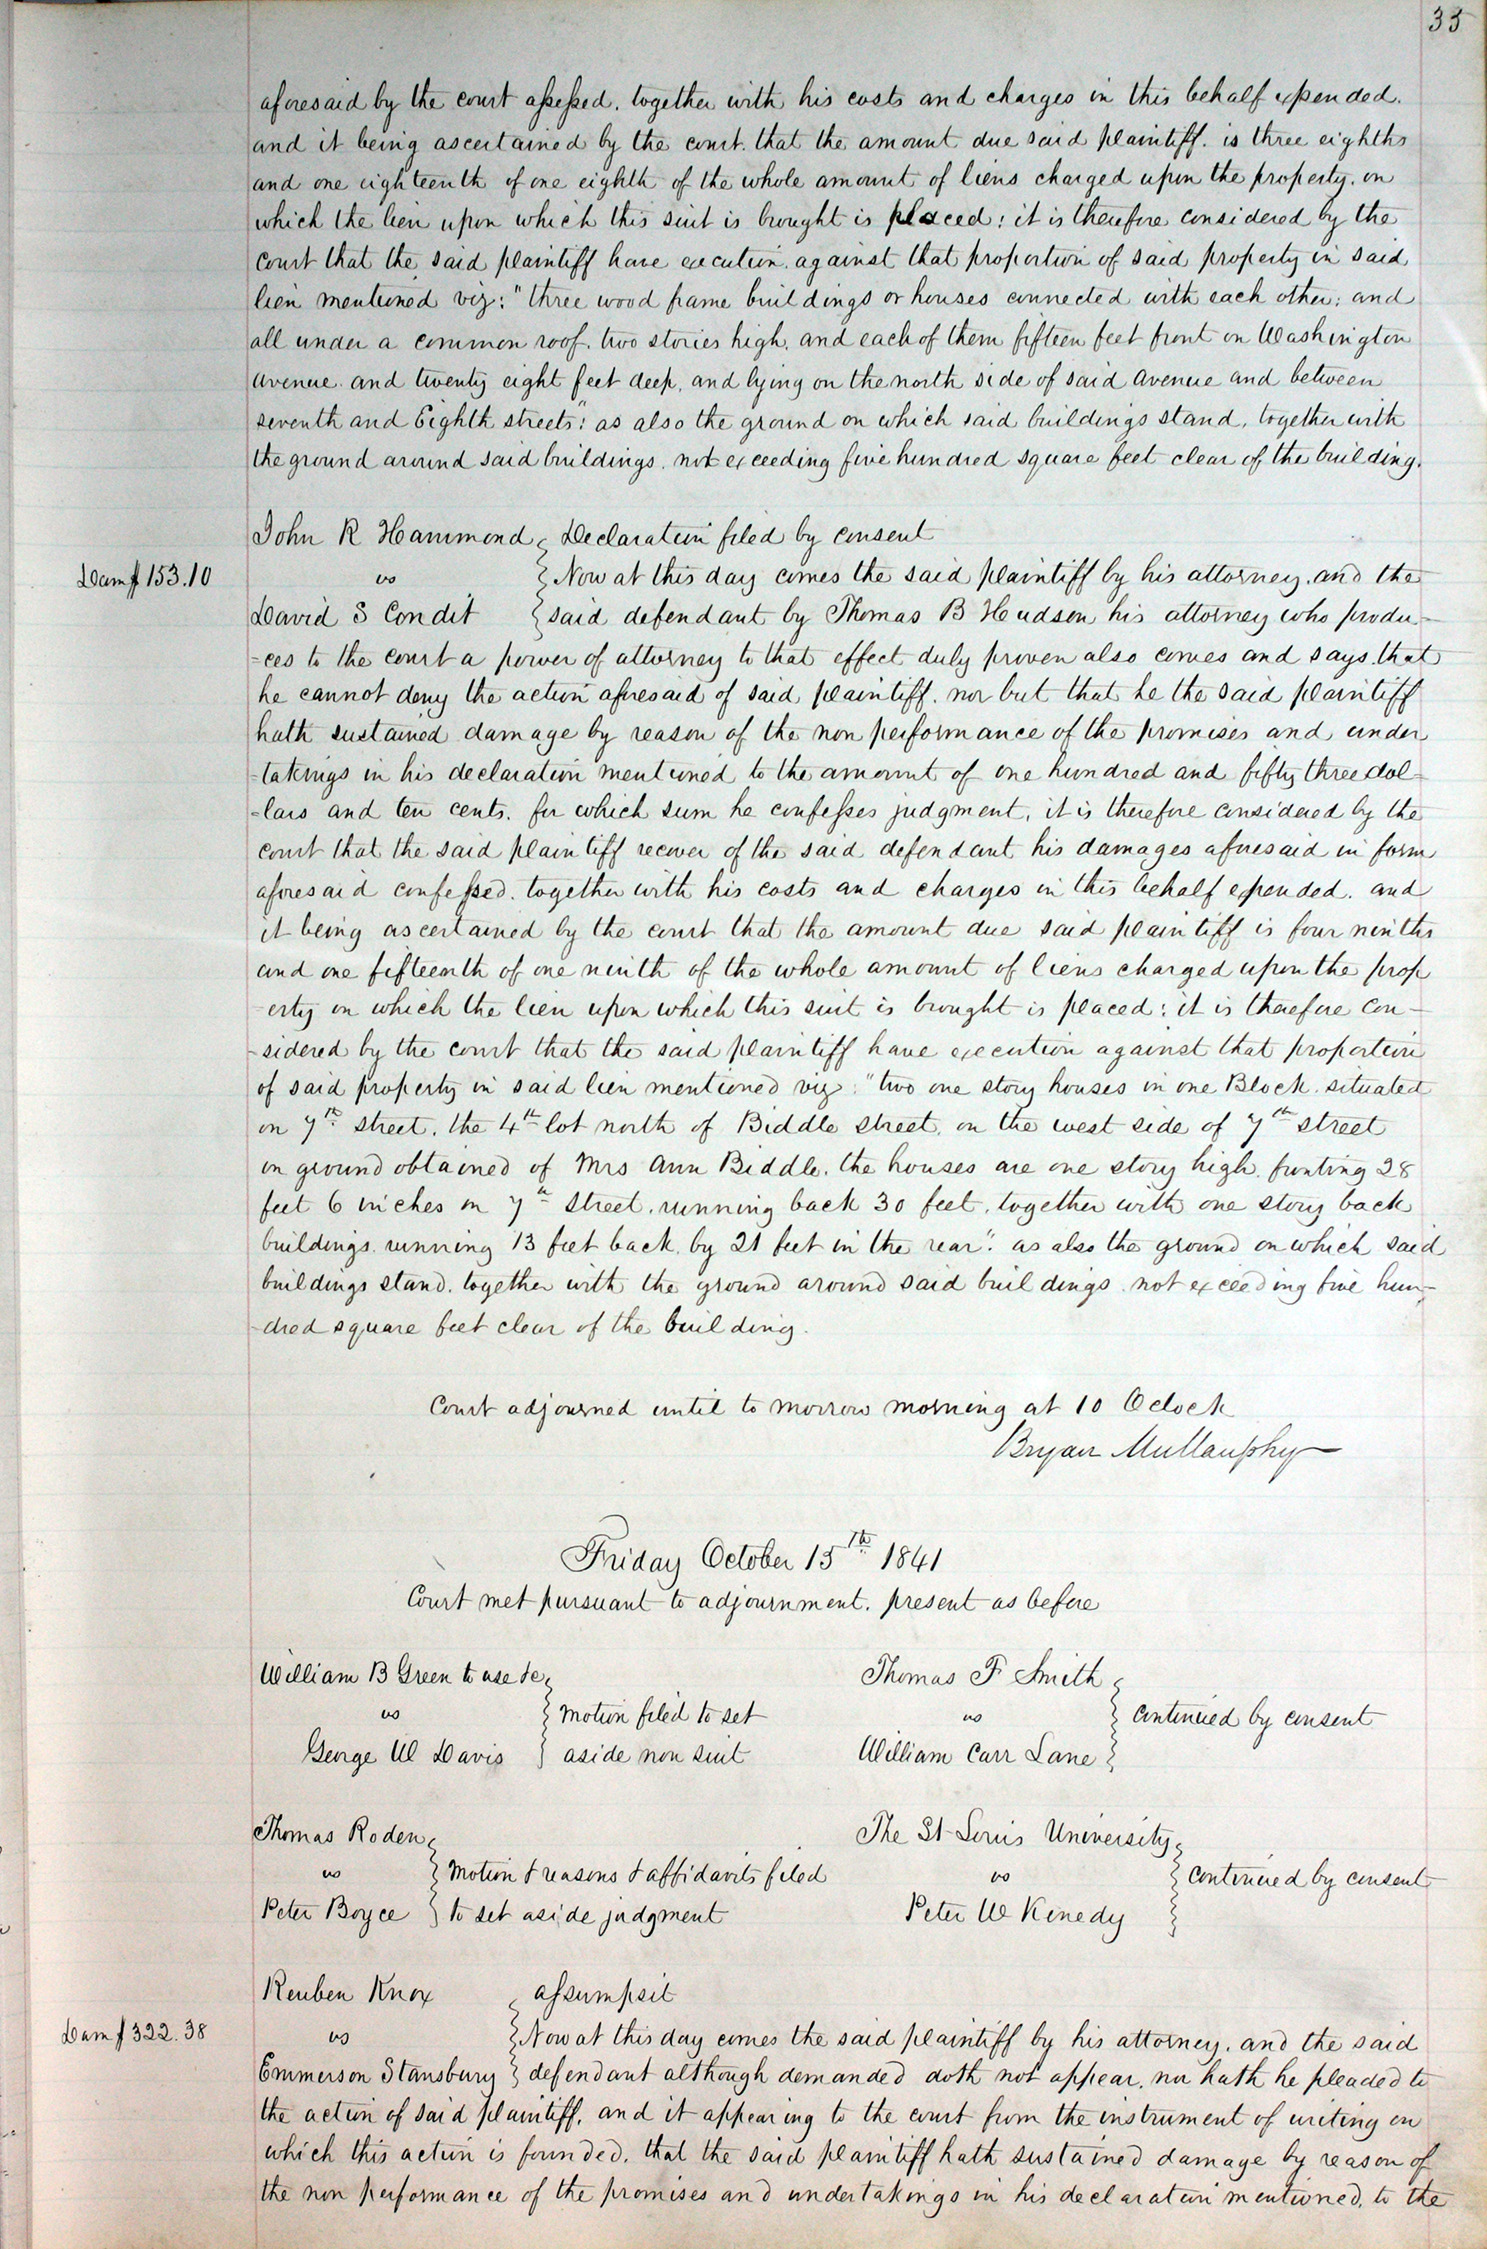 33
aforesaid by the court assessed. together with his costs and charges in this behalf expended.
and it being ascertained by the court. that the amount due said plaintiff. is three eighths
and one eighteenth of one eighth of the whole amount of liens charged upon the property. on
which the lien upon which this suit is brought is placed: it is therefore considered by the
court that the said plaintiff have execution. against that proportion of said property in said
lien mentioned viz: "three wood frame buildings or houses connected with each other; and
all under a common roof. two stories high. and each of them fifteen feet front on Washington
avenue. and twenty eight feet deep. and lying on the north side of said avenue and between
seventh and Eighth streets": as also the ground on which said buildings stand, together with
the ground around said buildings. not exceeding five hundred square feet clear of the building.
John R Hammond Declaration filed by consent
Dam $153.10 vs Now at this day comes the said plaintiff by his attorney. and the
David S Condit said defendant by Thomas B Hudson his attorney who produ-
-ces to the court a power of attorney to that effect duly proven also comes and says that
he cannot deny the action aforesaid of said plaintiff. nor but that he the said plaintiff
hath sustained damage by reason of the non performance of the promises and under
-takings in his declaration mentioned to the amount of one hundred and fifty three dol-
-lars and ten cents. for which sum he confesses judgment, it is therefore considered by the
court that the said plaintiff recover of the said defendant his damages aforesaid in form
aforesaid confessed. together with his costs and charges in this behalf expended. and
it being ascertained by the court that the amount due said plaintiff is four ninths
and one fifteenth of one ninth of the whole amount of liens charged upon the prop
erty on which the lien upon which this suit is brought is placed: it is therefore con-
-sidered by the court that the said plaintiff have execution against that proportion
of said property in said lien mentioned viz: "two one story houses in one Block. situated
on 7th street. the 4th lot north of Biddle street. on the west side of 7th street
on ground obtained of Mrs Ann Biddle. the houses are one story high. fronting 28
feet 6 inches on 7th street. running back 30 feet. together with one story back
buildings. running 13 feet back. by 21 feet in the rear". as also the ground on which said
buildings stand. together with the ground around said buildings. not exceeding five hun-
-dred square feet clear of the building.
Court adjourned until to morrow morning at 10 Oclock
Bryan Mullanphy
Friday October 15th 1841
Court met pursuant to adjournment. present as before
William B Green to use &c
vs motion filed to set
George W Davis aside non suit
Thomas F Smith
vs continued by consent
William Carr Lane
Thomas Roden
vs motion & reasons & affidavits filed
Peter Boyce to set aside judgment
The St Louis University
vs continued by consent
Peter W Kenedy
Reuben Knox assumpsit
Dam $322.38 vs Now at this day comes the said plaintiff by his attorney. and the said
Emmerson Stansbury defendant although demanded doth not appear. nor hath he pleaded to
the action of said plaintiff. and it appearing to the court from the instrument of writing on
which this action is founded. that the said plaintiff hath sustained damage by reason of
the non performance of the promises and undertakings in his declaration mentioned. to the